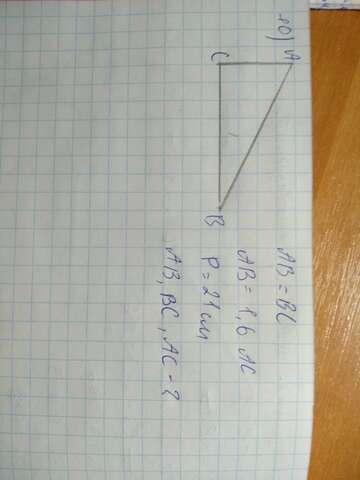 10)
A
C
B
AB = BC
AB = 1,6 AC
P = 21 см
AB, BC, AC - ?